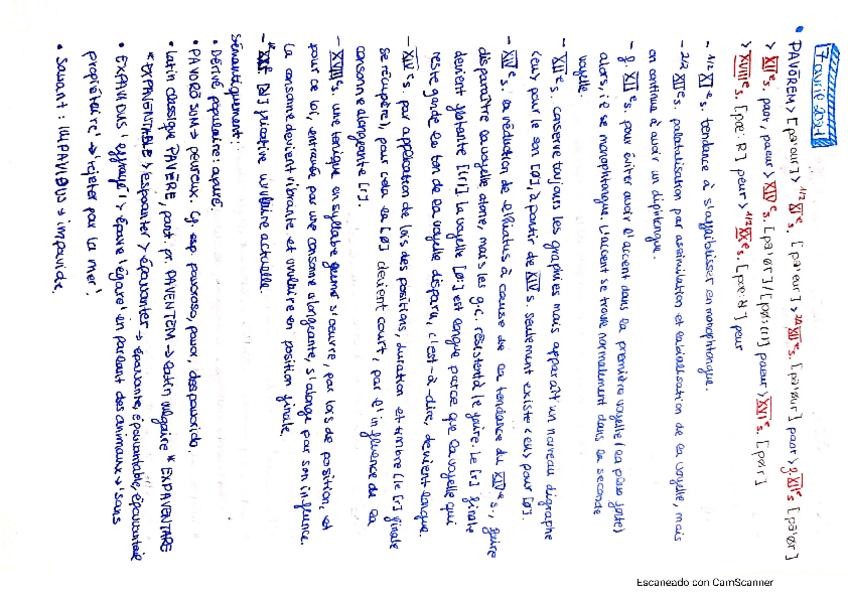 7 avril 2021
• PAVŌREM > [pavour] > 1/2 XIe s. [paour] > 2/2 XIIe s. [paœur] paor > f. XIIe s. [paør]
> XIIe s. paor, paeur > XIVe s. [paør] / [pə:r] paeur > XVIe s. [pør]
> XVIIIe s. [pœ:R] peur > 1/2 XXe s. [pœ:ʁ] peur
- 1/2 XIe s. tendance à s'affaiblisser en monophtongue.
- 2/2 XIIe s. palatalisation par assimilation et labialisation de la voyelle, mais
on continue à avoir un diphtongue.
- f. XIIe s. pour éviter avoir l'accent dans la première voyelle (la plus forte)
alors, il se monophtongue. L'accent se trouve normalement dans la seconde
voyelle.
- XIIe s. conserve toujours les graphies mais apparaît un nouveau digraphe
<eu> pour le son [ø], à partir de XIVe s. seulement existe <eu> pour [ø].
- XIVe s. la réduction de l'hiatus à cause de la tendance du XIVe s., faire
disparaître la voyelle atone, mais les g.c. résistent à le faire. Le [r] finale
devient [r] la voyelle [ø] est longue parce que la voyelle qui
reste garde le ton de la voyelle disparu, c'est-à-dire, devient longue.
- XVIe s. par application de lois des positions, duration et timbre (le [r] finale
se récupère), pour cela en [ø] devient court, par l'influence de la
consonne alongeante [r].
- XVIIIe s. une tonique en syllabe fermé s'oeuvre, par lois de position, et
pour ce loi, entravée par une consonne alongeante, s'alonge par son influence.
La consonne devient vibrante et uvulaire en position finale.
- XXe [ʁ] fricative uvulaire actuelle.
Sémantiquement:
• Dérivé populaire: apeuré.
• PAVORŌSUM > peureux. Cf. esp. pavoroso, pavor, despavorido.
• Latin classique PAVĒRE, part. pr. PAVENTEM → latin vulgaire *EXPAVENTARE
*EXPAVENTABLE > espoanter > épouvanter → épouvante, épouvantable, épouvantail
• EXPAVIDUS 'effrayé' > épave 'égaré' en parlant des animaux → 'sans
propriétaire' → 'rejeter par la mer'.
• Savant: IMPAVIDUS → impavide.
Escaneado con CamScanner